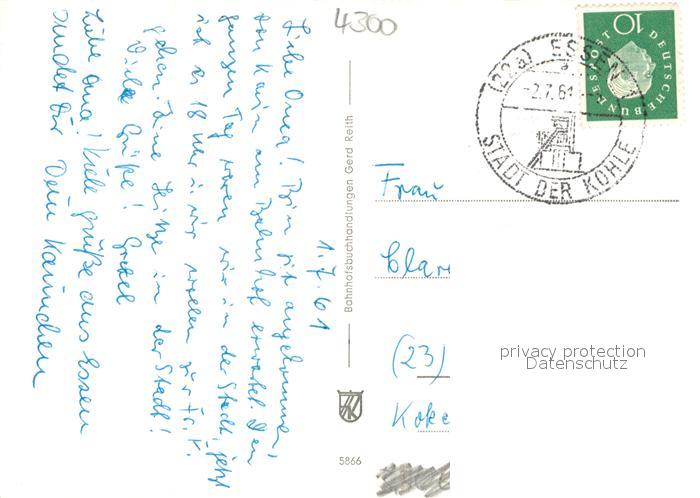 4300
1.7.61
Liebe Oma! Bin gut angekommen,
von Karin am Bahnhof erwartet. Den
ganzen Tag waren wir in der Stadt, jetzt
ist es 18 Uhr u. wir wollen zur
gehen. Eine Hitze in der Stadt!
Viele Grüße! Gretel
Liebe Oma! Viele Grüße aus Essen
sendet Dir Dein Karinchen
Bahnhofsbuchhandlungen Gerd Reith
5866
10
DEUTSCHE BUNDESPOST
(22a) ESSEN
-2.7.61
STADT DER KOHLE
Frau
Clar
(23)
Koke
privacy protection
Datenschutz